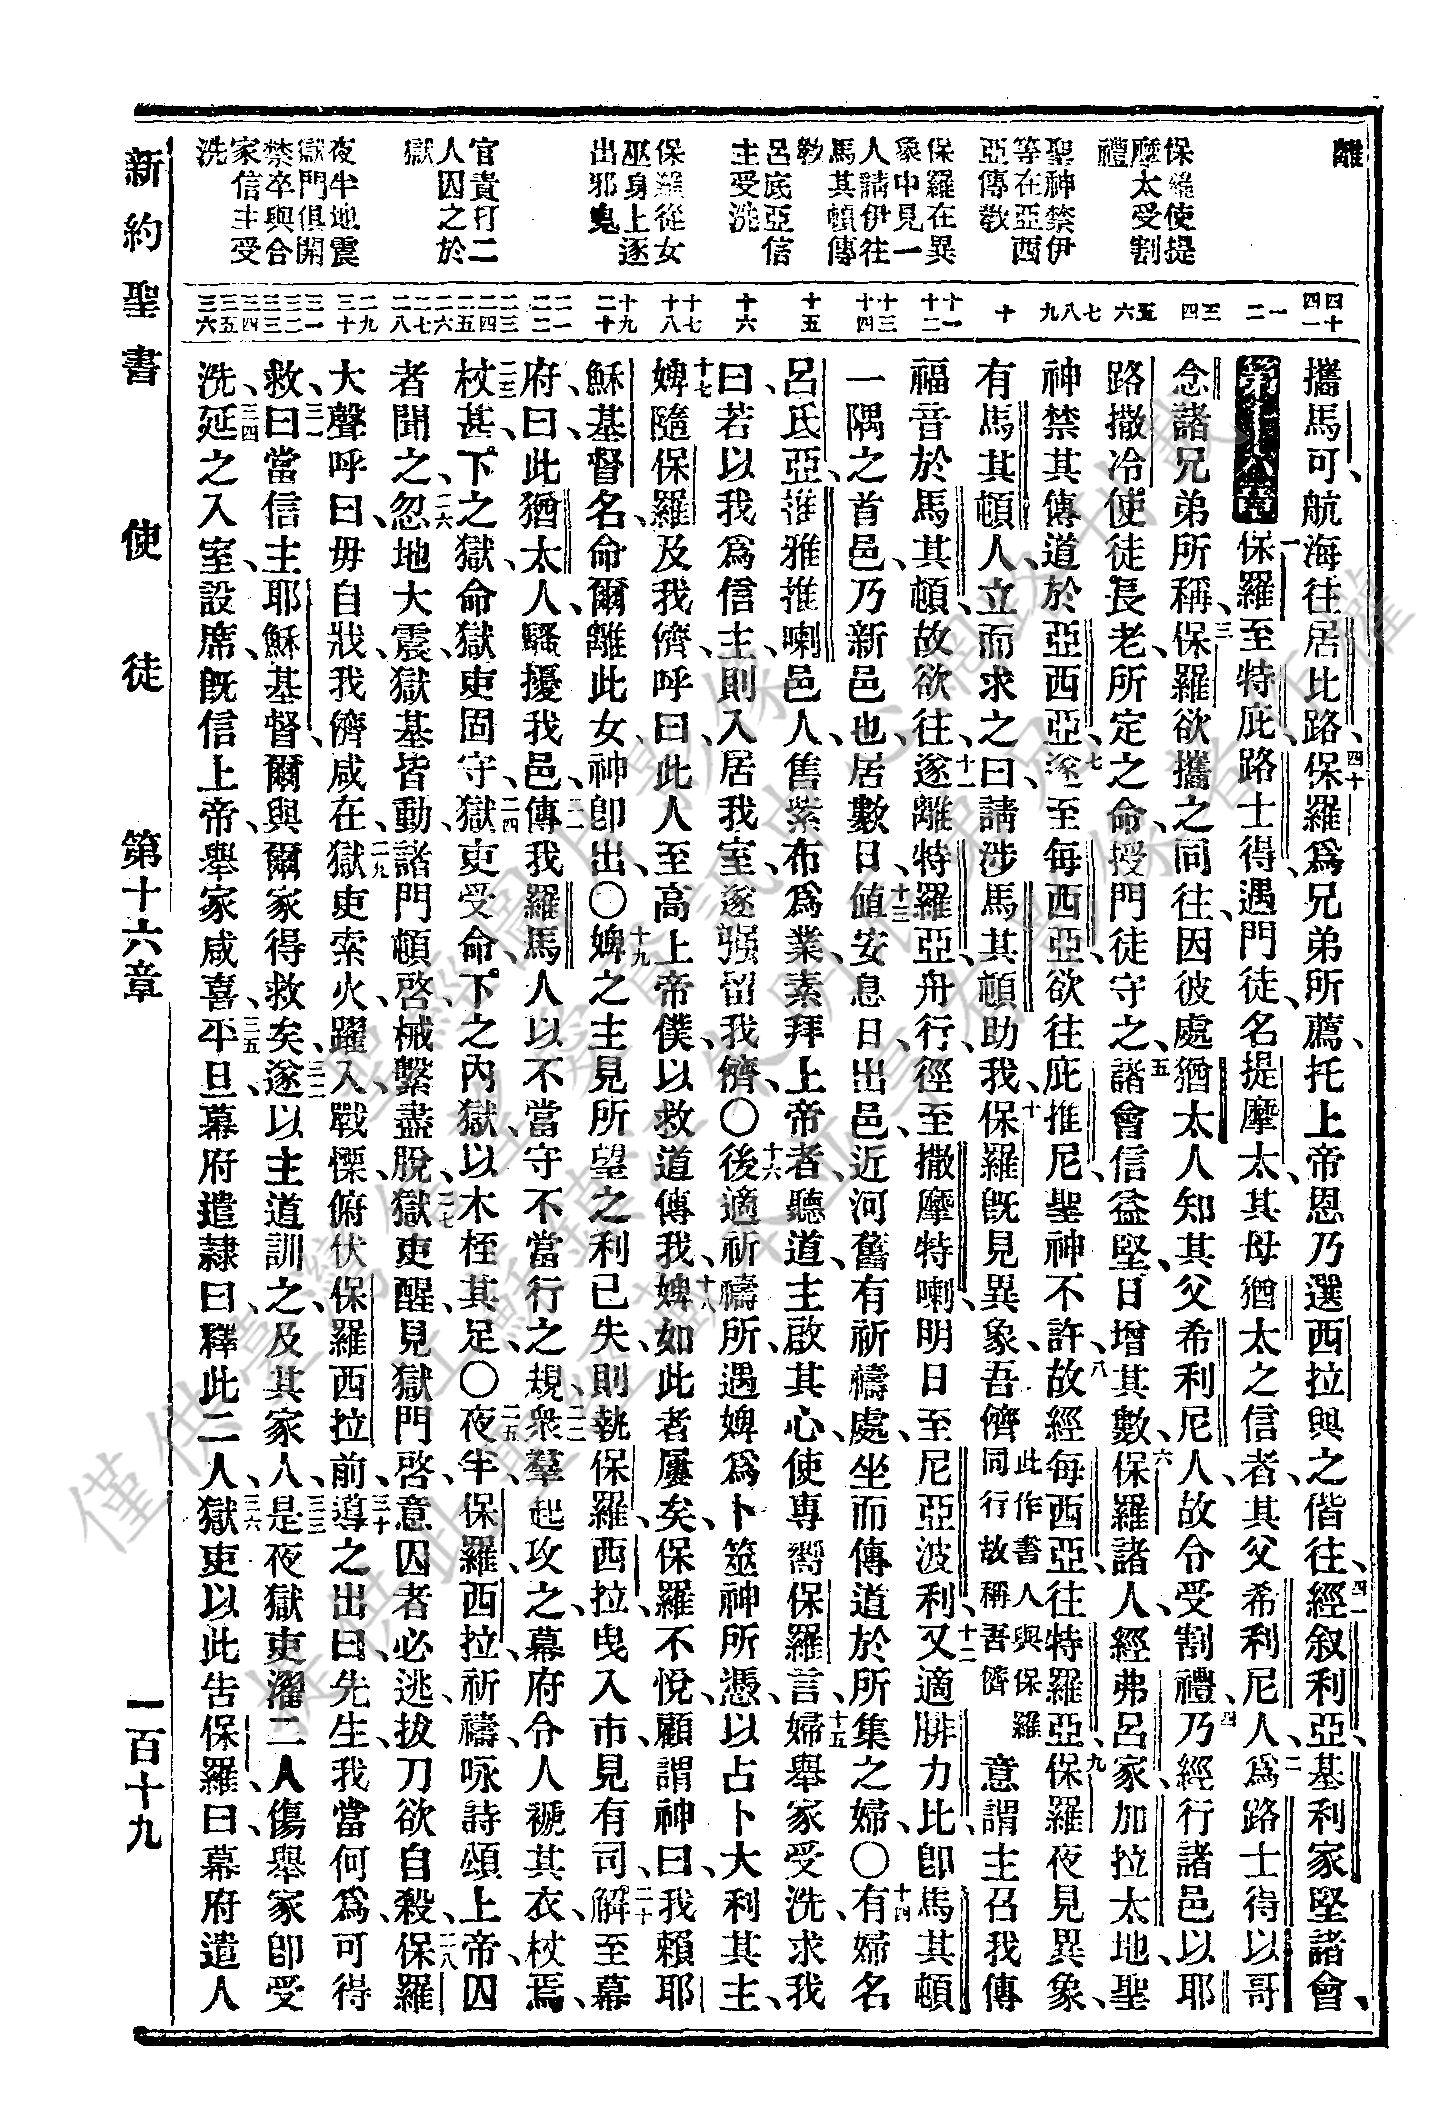 離
保羅使提
摩太受割
禮
聖神禁伊
等在亞西
亞傳敎
保羅在異
象中見一
人請伊往
馬其頓傳
敎
呂底亞信
主受洗
保羅從女
巫身上逐
出邪鬼
官責打二
人囚之於
獄
夜半地震
獄門俱開
禁卒與合
家信主受
洗
四十
四一
一
二
三
四
五
六
七
八
九
十
十一
十二
十三
十四
十五
十六
十七
十八
十九
二十
二一
二二
二三
二四
二五
二六
二七
二八
二九
三十
三一
三二
三三
三四
三五
三六
攜馬可、航海往居比路、四十保羅爲兄弟所薦、托上帝恩、乃選西拉與之偕往、四一經叙利亞、基利家、堅諸會、
第十六章 一保羅至特庇、路士得、遇門徒、名提摩太、其母猶太之信者、其父希利尼人、二爲路士得以哥
念諸兄弟所稱、三保羅欲攜之同往、因彼處猶太人知其父希利尼人、故令受割禮、四乃經行諸邑、以耶
路撒冷使徒長老所定之命、授門徒守之、五諸會信益堅、日增其數、六保羅諸人、經弗呂家、加拉太地、聖
神禁其傳道於亞西亞、七遂至每西亞、欲往庇推尼、聖神不許、八故經每西亞、往特羅亞、九保羅夜見異象、
有馬其頓人、立而求之曰、請涉馬其頓助我、十保羅旣見異象、吾儕此作書人與保羅同行故稱吾儕意謂主召我傳
福音於馬其頓、故欲往、十一遂離特羅亞、舟行、徑至撒摩特喇、明日至尼亞波利、十二又適腓力比、卽馬其頓
一隅之首邑、乃新邑也、居數日、十三値安息日、出邑、近河、舊有祈禱處、坐而傳道於所集之婦、〇十四有婦名
呂氏亞、推雅推喇邑人、售紫布爲業、素拜上帝者、聽道、主啟其心、使專嚮保羅言、十五婦舉家受洗、求我
曰、若以我爲信主、則入居我室、遂强留我儕、〇十六後適祈禱所、遇婢爲卜筮神所憑、以占卜大利其主、
十七婢隨保羅及我儕、呼曰、此人至高上帝僕、以救道傳我、十八婢如此者屢矣、保羅不悅、顧謂神曰、我賴耶
穌基督名、命爾離此女、神卽出、〇十九婢之主、見所望之利已失、則執保羅西拉、曳入市、見有司、二十解至幕
府曰、此猶太人、騷擾我邑、二一傳我羅馬人以不當守不當行之規、二二衆羣起攻之、幕府令人褫其衣、杖焉、
二三杖甚、下之獄、命獄吏固守、二四獄吏受命、下之內獄、以木桎其足、〇二五夜半、保羅西拉、祈禱咏詩頌上帝、囚
者聞之、二六忽地大震、獄基皆動、諸門頓啓、械繫盡脫、二七獄吏醒、見獄門啓、意囚者必逃、拔刀欲自殺、二八保羅
大聲呼曰、毋自戕、我儕咸在、二九獄吏索火、躍入、戰慄俯伏保羅西拉前、三十導之出曰、先生、我當何爲、可得
救、三一曰、當信主耶穌基督、爾與爾家得救矣、三二遂以主道訓之、及其家人、三三是夜獄吏濯二人傷、舉家卽受
洗、三四延之入室、設席、旣信上帝、舉家咸喜、三五平旦、幕府遣隷曰、釋此二人、三六獄吏以此告保羅、曰、幕府遣人
新約聖書 使徒 第十六章 一百十九